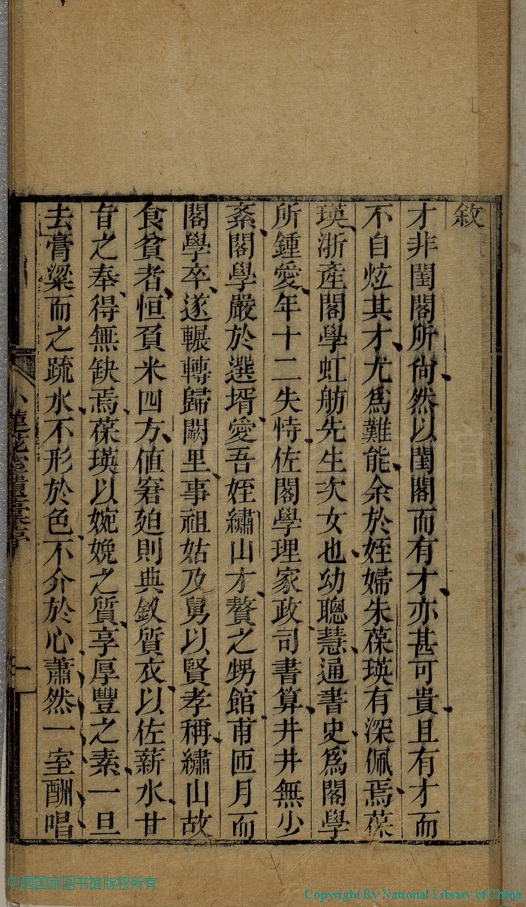 敘
才非閨閣所尙然以閨閣而有才亦甚可貴且有才而
不自炫其才尤爲難能余於姪婦朱葆瑛有深佩焉葆
瑛浙產閣學虹舫先生次女也幼聰慧通書史爲閣學
所鍾愛年十二失恃佐閣學理家政司書算井井無少
紊閣學嚴於選壻愛吾姪繡山才贅之甥館甫匝月而
閣學卒遂輾轉歸闕里事祖姑及舅以賢孝稱繡山故
食貧者恒負米四方値窘廹則典釵質衣以佐薪水甘
旨之奉得無缺焉葆瑛以婉娩之質享厚豐之素一旦
去膏粱而之疏水不形於色不介於心蕭然一室酬唱
小蓮花室遺
一
中国国家图书馆版权所有
Copyright By National Library of China